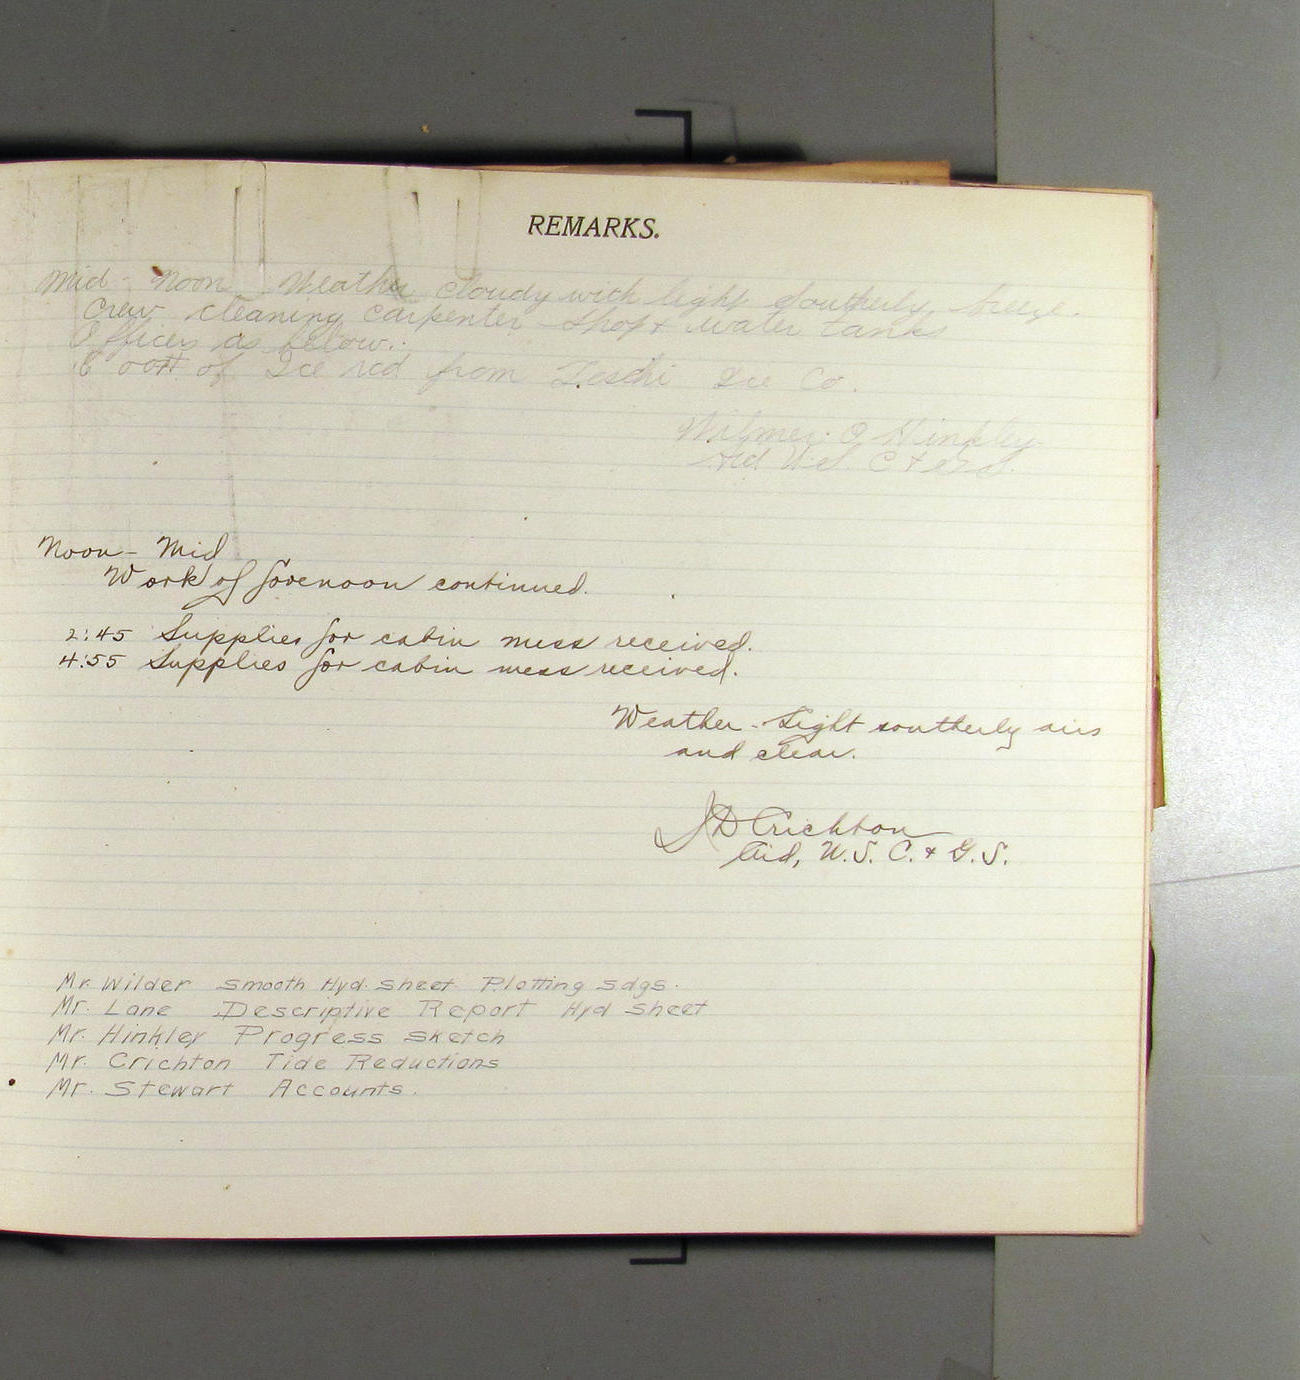 REMARKS.
Mid - Noon Weather cloudy with light southerly breeze.
Crew cleaning carpenter shop & water tanks
Officers as below.
600# of Ice rcd from Leschi Ice Co.
Wilmer O Hinkley
Aid U.S. C & G.S.
Noon - Mid
Work of forenoon continued.
2:45 Supplies for cabin mess received.
4:55 Supplies for cabin mess received.
Weather - Light southerly airs
and clear.
J D Crichton
Aid, U.S. C. & G.S.
Mr. Wilder Smooth Hyd. Sheet Plotting sdgs.
Mr. Lane Descriptive Report Hyd Sheet
Mr. Hinkley Progress Sketch
Mr. Crichton Tide Reductions
Mr. Stewart Accounts.